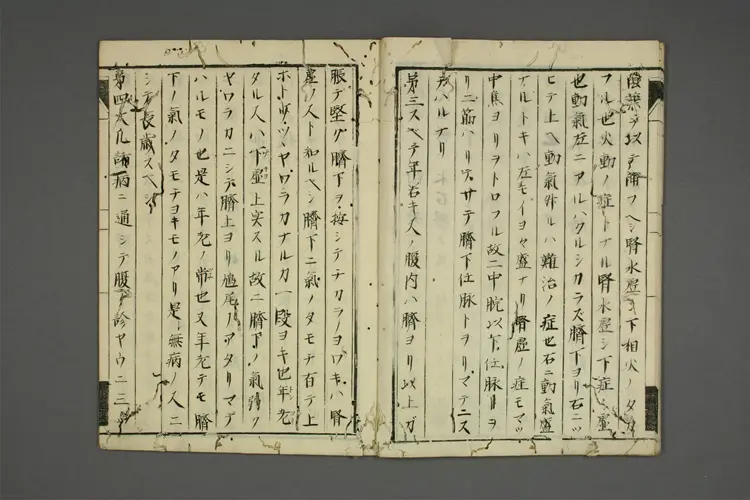 陰薬ヲ以テ補フヘシ腎水虚シ下相火ノタカ
フル也火動ノ症トナル腎水虚シ下症ニ虚
也動氣左ニアルハクルシカラズ臍下ヨリ右ニツ
ヒテ上ヘ動氣升ルハ難治ノ症也右ニ動氣盛
ナルトキハ左モイヨヤ盛ナリ腎虚ノ症モマツ
中焦ヨリヲトロフル故ニ中脘以下任脉リヲ
リ二筋ハリ穴サテ臍下任脉トヲリマテニス
スハルナリ
第三スヘテ年若キ人ノ腹内ハ臍ヨリ以上ガ
脹テ堅ク臍下ヲ按シテチカラノヨロキハ腎
虚ノ人ト和ルヘシ臍下ニ氣ノタモチ百テ上
ホトサツヤワラカナルカ一段ヨキ也年老
タル人ハ下虚上実スル故ニ臍下ノ氣薄ク
ヤワラカニシテ臍上ヨリ鳩尾ノアタリマデ
ハルモノ也是ハ年老ノ常也又年老テモ臍
下ノ氣ノタモテヨキモノアリ是無病ノ人ニ
シテ長歳スヘシ
第四大凡諸病ニ通シテ腹ヲ診ヤウニ三